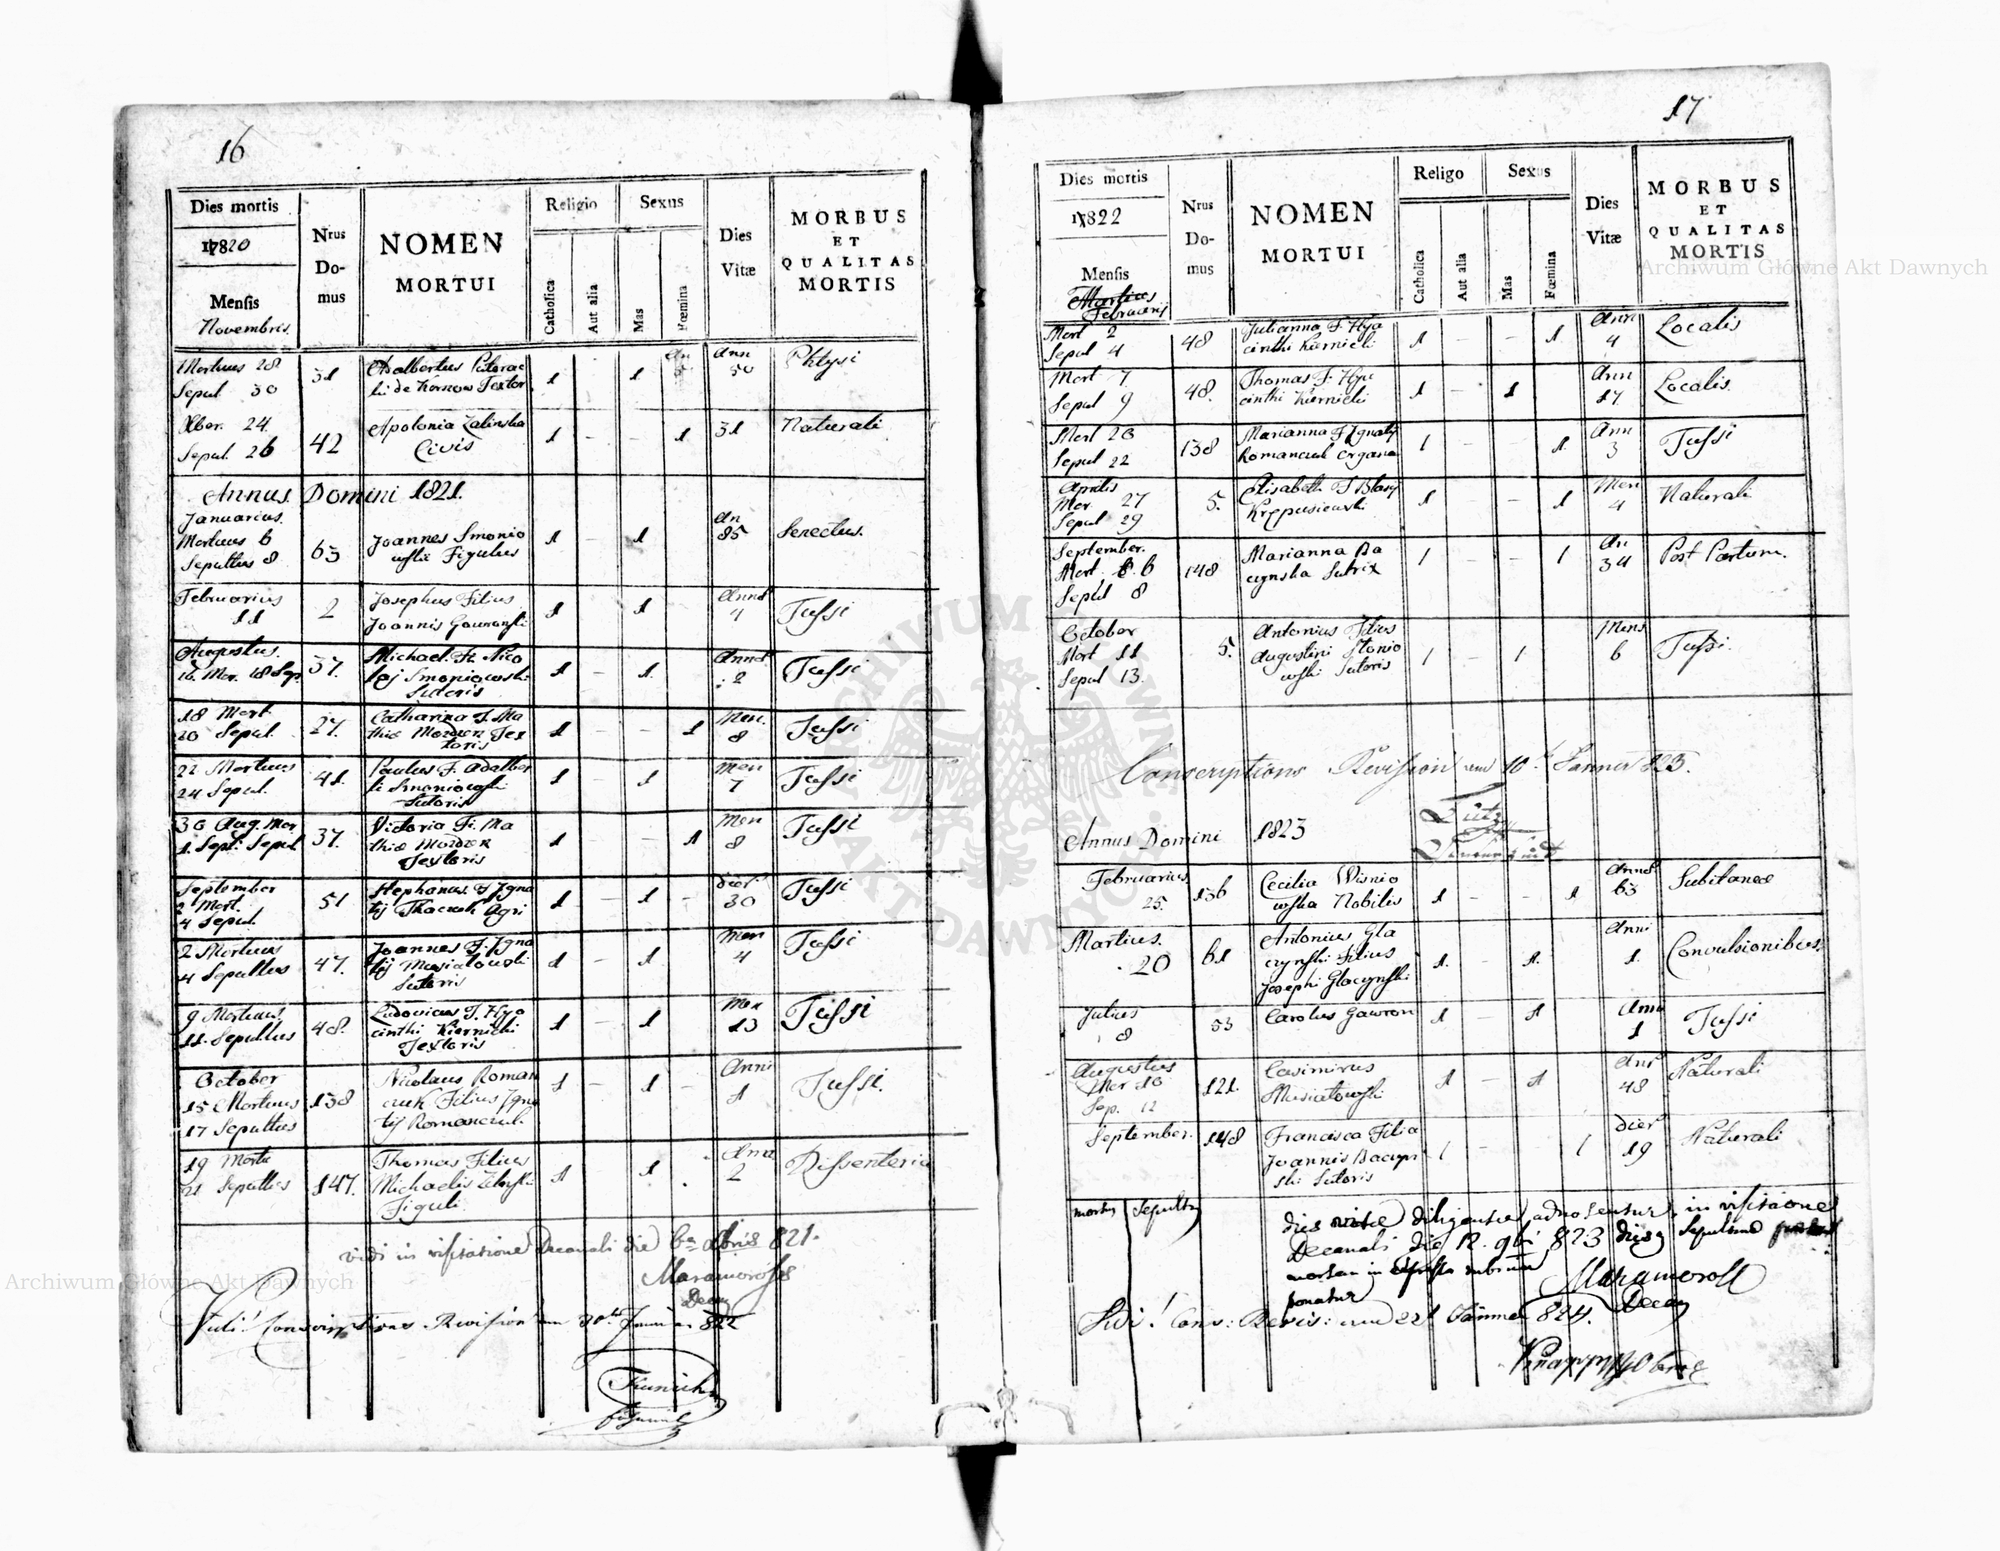 16
Dies mortis
17820
Mensis
Novembris
Nrus
Do-
mus
NOMEN
MORTUI
Religio
Catholica
Aut alia
Sexus
Mas
Fœmina
Dies
Vitæ
MORBUS
ET
QUALITAS
MORTIS
Mortuus 28
Sepul 30
31
Adalbertus
de Textor
1 - 1
Ann
50
Phtysi
Xber. 24.
Sepul. 26
42
Apolonia Zalinska
Civis
1 - - 1
31
Naturali
Annus Domini 1821.
Januarius.
Mortuus 6
Sepultus 8
63
Joannes Smonio
wski Figulus
1 1
An
85
Senectus.
Februarius
11
2
Josephus Filius
Joannis Gawronski
1 1
Anno
4
Tussi
Augustus.
16. Mor. 18 Sep.
37.
Michael Fi. Nico
laj Smoniowski
Sutoris
1 - 1.
2
Tussi
18 Mort
20 Sepul.
27.
Catharina F. Ma
thiæ Tex
toris
1 - - 1
Men.
8
Tussi
22 Mortuus
24 Sepul.
41.
Paulus F. Adalber
ti Smoniowski
Sutoris
1 - 1
Men
7
Tussi
30 Aug. Mor
1. Sept: Sepul
37.
Victoria Fi. Ma
thiæ
Textoris
1 - 1
Men
8
Tussi
September
2 Mort.
4 Sepul.
51
Stephanus F Igna
tij Tkaczuk Agri
1 - 1 -
dier
30
Tussi
2 Mortuus
4 Sepultus
47.
Joannes F. Igna
tij Musiatowski
Sutoris
1 - 1
Men
4
Tussi
9 Mortuus
11. Sepultus
48.
Ludovicus F. Hya
cinthi Kiernicki
Textoris
1 - 1
Men
13
Tussi
October
15 Mortuus
17 Sepultus
138
Nicolaus Roman
czuk Filius Igna
tij Romanczuk.
1 - 1 -
Anni
1
Tussi.
19 Mortu
21 Sepultus
147.
Thomas Filius
Michaelis
Figuli
1 1
2
Dissenteria
vidi in visitatione Decanali die 6a 821.
Maramoross
Decan
Vidi! Conscriptions Revision am 30ten 822
17
Dies mortis
17822
Mensis
Martius
Februarij
Nrus
Do-
mus
NOMEN
MORTUI
Religo
Catholica
Aut alia
Sexus
Mas
Fœmina
Dies
Vitæ
MORBUS
ET
QUALITAS
MORTIS
Mort 2
Sepul 4
48
Julianna F. Hya
cinthi Kiernicki
1 - - 1
Ann
4
Localis
Mort 7
Sepul 9
48.
Thomas F. Hya
cinthi Kiernicki
1 - 1
Ann
17.
Localis.
Mort 20
Sepul 22
138
Marianna F Ignatij
Romanczuk Organa
1 - - 1.
Ann
3
Tussi
Aprilis
Mor 27
Sepul 29
5.
Elisabeth F Blasij
1 - - 1
Men
4
Naturali
September.
Mort. 6
Sepul 8
148
Marianna Ba
czynska Sutrix
1 - 1
An
34
Post Partum.
October
Mort 11
Sepul 13.
5.
Antonius Filius
Augustini Stonio
wski Sutoris
1 - 1
Mens
6
Tussi.
Conscriptions Revision am 10ten Janner 823.
Annus Domini 1823
Februarius.
25.
136
Cecilia Wisnio
wska Nobilis
1 - - 1
Anno
63
Subitanea
Martius.
20
61
Antonius Gla
czynski Filius
Josephi Glaczynski
1. - 1.
Anni
1.
Convulsionibus.
Julius
8
53
Carolus Gawron
1 - 1
1
Tussi
Augustus
Mor 10
Sep. 12
121.
Casimirus
Musiatowski
1 - 1
48
Naturali
September.
148
Francisca Filia
Joannis Baczyn
ski Sutoris
1 - - 1
dier
19
Naturali
mortus Sepultus
dies diligenter adnotentur, in visitatione
Decanali die 12. 9bri 823
ponatur
Maramoross
Decan
Vidi! Cons: Revis: am 22t Jänner 824.
Archiwum Główne Akt Dawnych
Archiwum Główne Akt Dawnych
ARCHIWUM GŁÓWNE AKT DAWNYCH